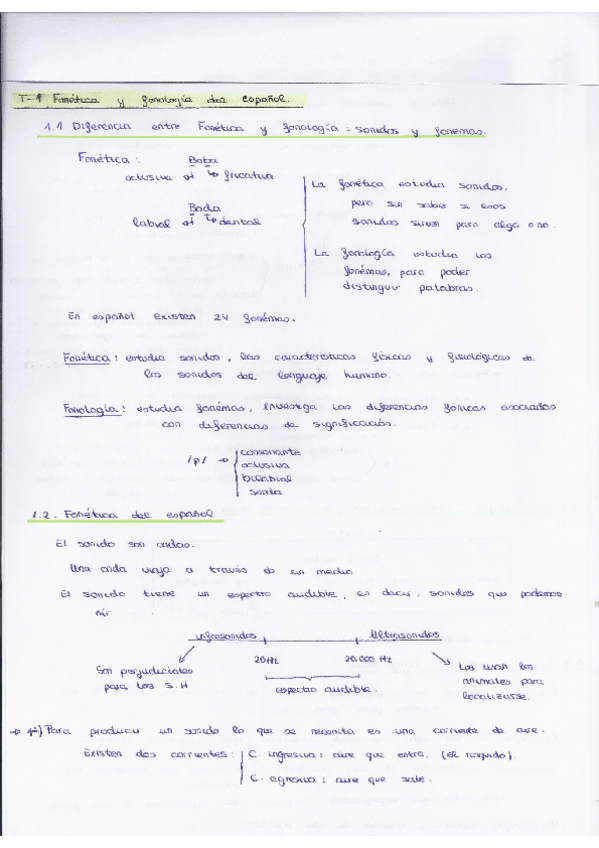 T-1 Fonética y fonología del español.
1.1 Diferencia entre Fonética y fonología: sonidos y fonemas.
Fonética: Boba
oclusiva fricativa
Boda
labial dental
La fonética estudia sonidos,
pero sin saber si esos
sonidos sirven para algo o no.
La fonología estudia los
fonémas, para poder
distinguir palabras.
En español existen 24 fonémas.
Fonética: estudia sonidos, las características físicas y fisiológicas de
los sonidos del lenguaje humano.
Fonología: estudia fonémas, investiga las diferencias fónicas asociadas
con diferencias de significación.
/p/ → consonante
oclusiva
bilabial
sorda
1.2. Fonética del español
El sonido son ondas.
Una onda viaja a través de un medio
El sonido tiene un espectro audible, es decir, sonidos que podemos
oir
infrasonidos Ultrasonidos
20Hz 20.000 Hz
Son perjudiciales
para los S.H
espectro audible.
Los usan los
animales para
localizarse.
→ 1º) Para producir un sonido lo que se necesita es una corriente de aire.
Existen dos corrientes: C. ingresiva: aire que entra, (el ronquido).
C. egresiva: aire que sale.